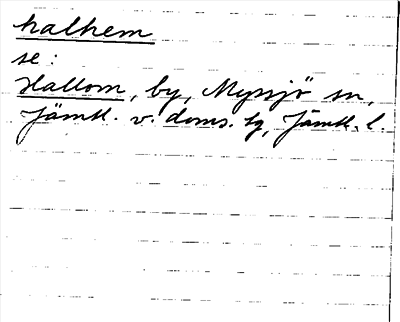 halhem
se:
Hallom, by, Myssjö sn,
Jämtl. v. doms. tg, Jämtl. l.